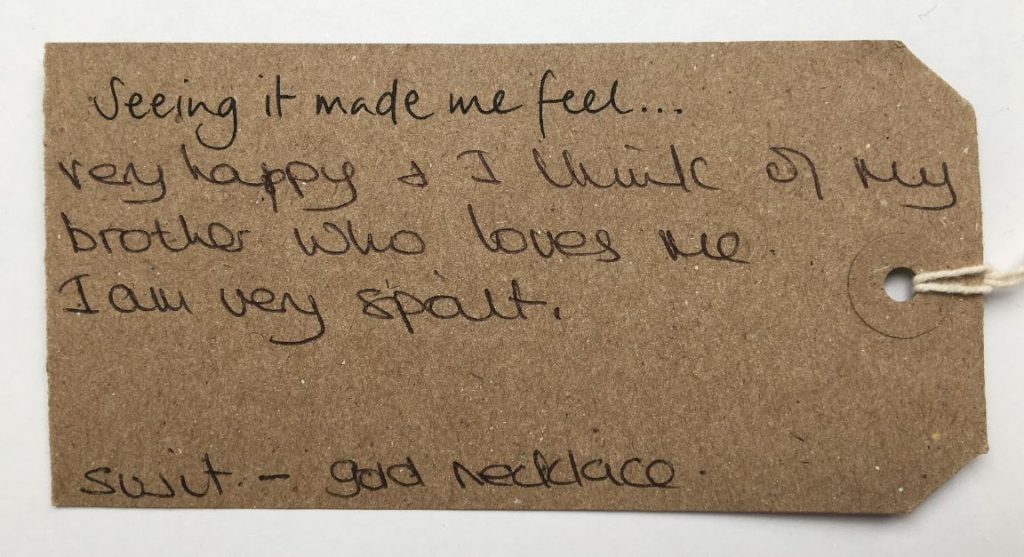 Seeing it made me feel...
very happy & I think of my
brother who loves me.
I am very spoilt.
- gold necklace.